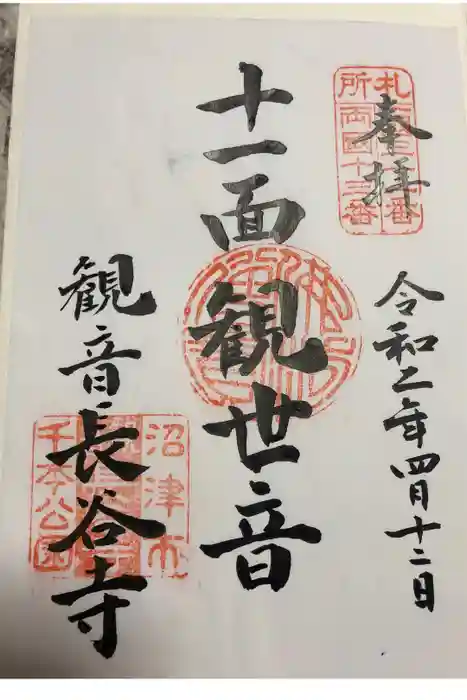 奉拝
札所
両国十三番
令和二年四月十二日
十一面観世音
観音長谷寺
沼津市
千本公園